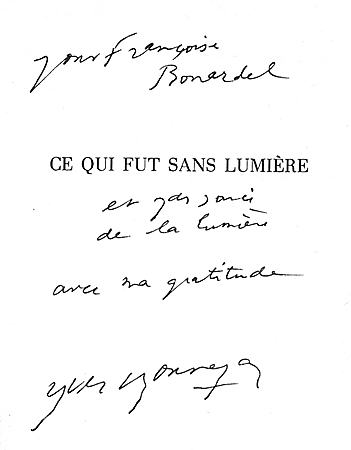 pour Françoise
Bonardel
CE QUI FUT SANS LUMIÈRE
et par souci
de la lumière
avec ma gratitude
Yves Bonnefoy